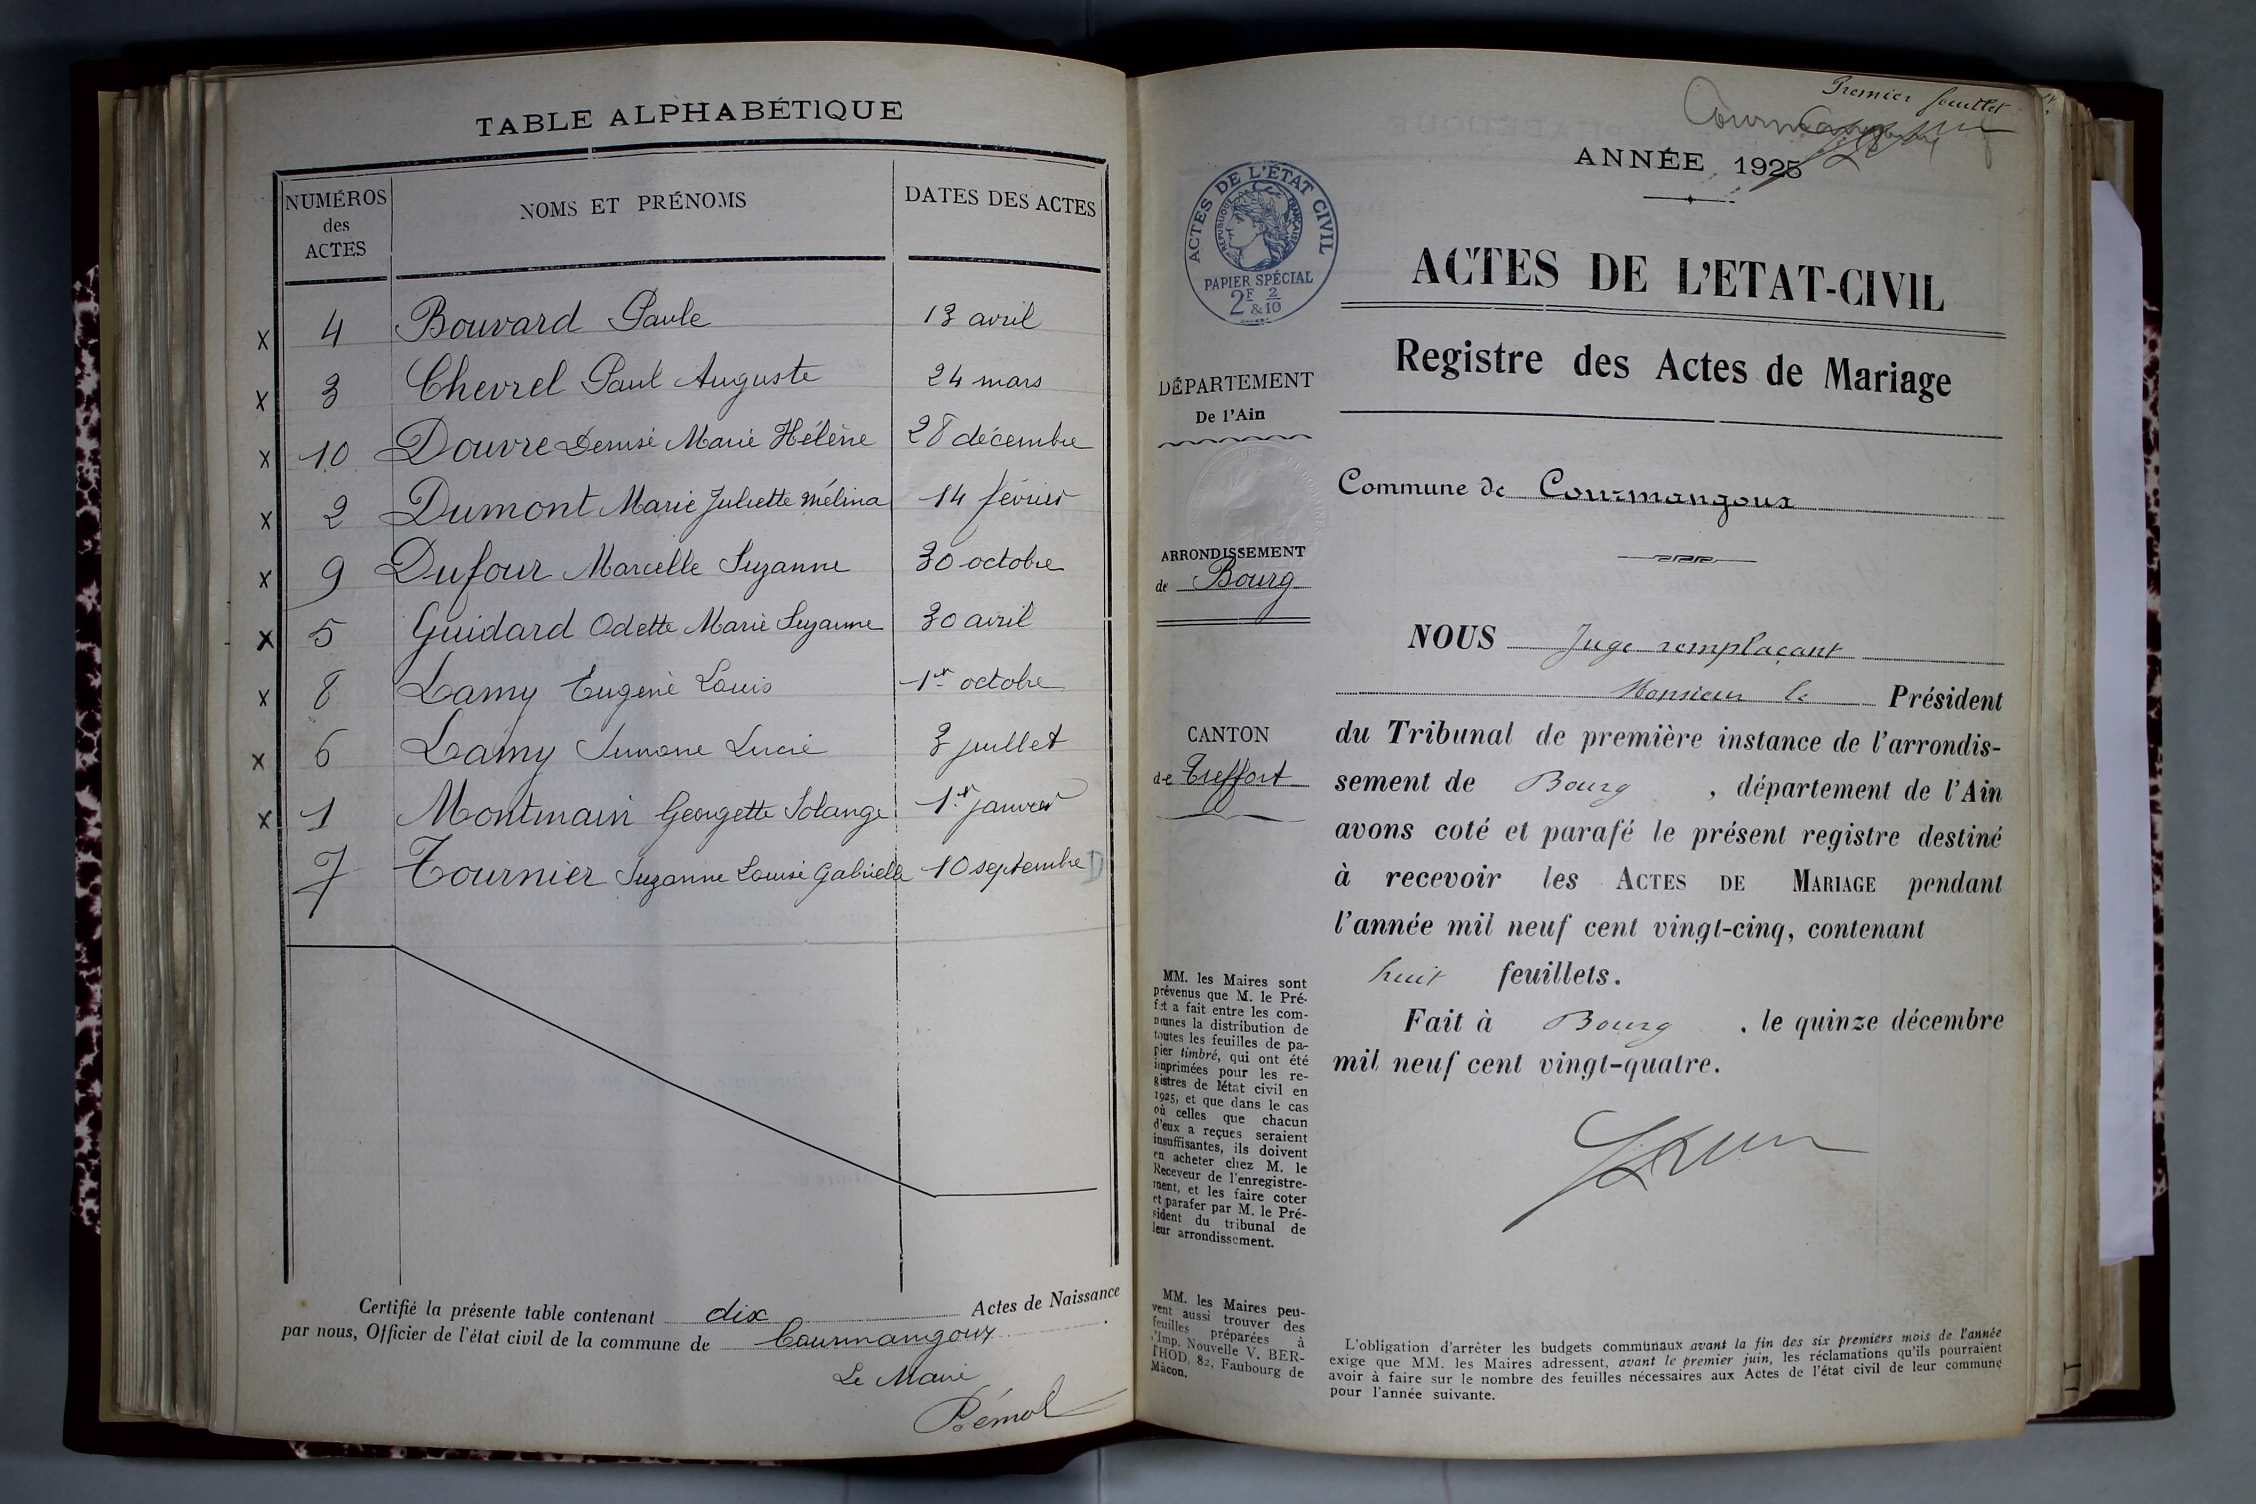 TABLE ALPHABÉTIQUE
NUMÉROS des ACTES NOMS ET PRÉNOMS DATES DES ACTES
x 4 Bouvard Paule 13 avril
x 3 Chevrel Paul Auguste 24 mars
x 10 Douvre Denise Marie Hélène 28 décembre
x 2 Dumont Marie Juliette Mélina 14 février
x 9 Dufour Marcelle Suzanne 30 octobre
x 5 Guidard Odette Marie Suzanne 30 avril
x 8 Lamy Eugène Louis 1er octobre
x 6 Lamy Simone Lucie 3 juillet
x 1 Montmain Georgette Solange 1er janvier
7 Tournier Suzanne Louise Gabrielle 10 septembre D
Certifié la présente table contenant dix Actes de Naissance
par nous, Officier de l'état civil de la commune de Courmangoux.
Le Maire
Pémol
Premier feuillet
ANNÉE 1925
ACTES DE L'ÉTAT CIVIL
RÉPUBLIQUE FRANÇAISE
PAPIER SPÉCIAL
2F & 2/10
DÉPARTEMENT
De l'Ain
ARRONDISSEMENT
de Bourg
CANTON
de Treffort
MM. les Maires sont
prévenus que M. le Pré-
fet a fait entre les com-
munes la distribution de
toutes les feuilles de pa-
pier timbré, qui ont été
imprimées pour les re-
gistres de l'état civil en
1925, et que dans le cas
où celles que chacun
d'eux a reçues seraient
insuffisantes, ils doivent
en acheter chez M. le
Receveur de l'enregistre-
ment, et les faire coter
et parafer par M. le Pré-
sident du tribunal de
leur arrondissement.
MM. les Maires peu-
vent aussi trouver des
feuilles préparées à
l'Imp. Nouvelle V. BER-
THOD, 82, Faubourg de
Mâcon.
ACTES DE L'ETAT-CIVIL
Registre des Actes de Mariage
Commune de Courmangoux
NOUS Juge remplaçant
Monsieur le Président
du Tribunal de première instance de l'arrondis-
sement de Bourg , département de l'Ain
avons coté et parafé le présent registre destiné
à recevoir les ACTES DE MARIAGE pendant
l'année mil neuf cent vingt-cinq, contenant
huit feuillets.
Fait à Bourg , le quinze décembre
mil neuf cent vingt-quatre.
L'obligation d'arrêter les budgets communaux avant la fin des six premiers mois de l'année
exige que MM. les Maires adressent, avant le premier juin, les réclamations qu'ils pourraient
avoir à faire sur le nombre des feuilles nécessaires aux Actes de l'état civil de leur commune
pour l'année suivante.